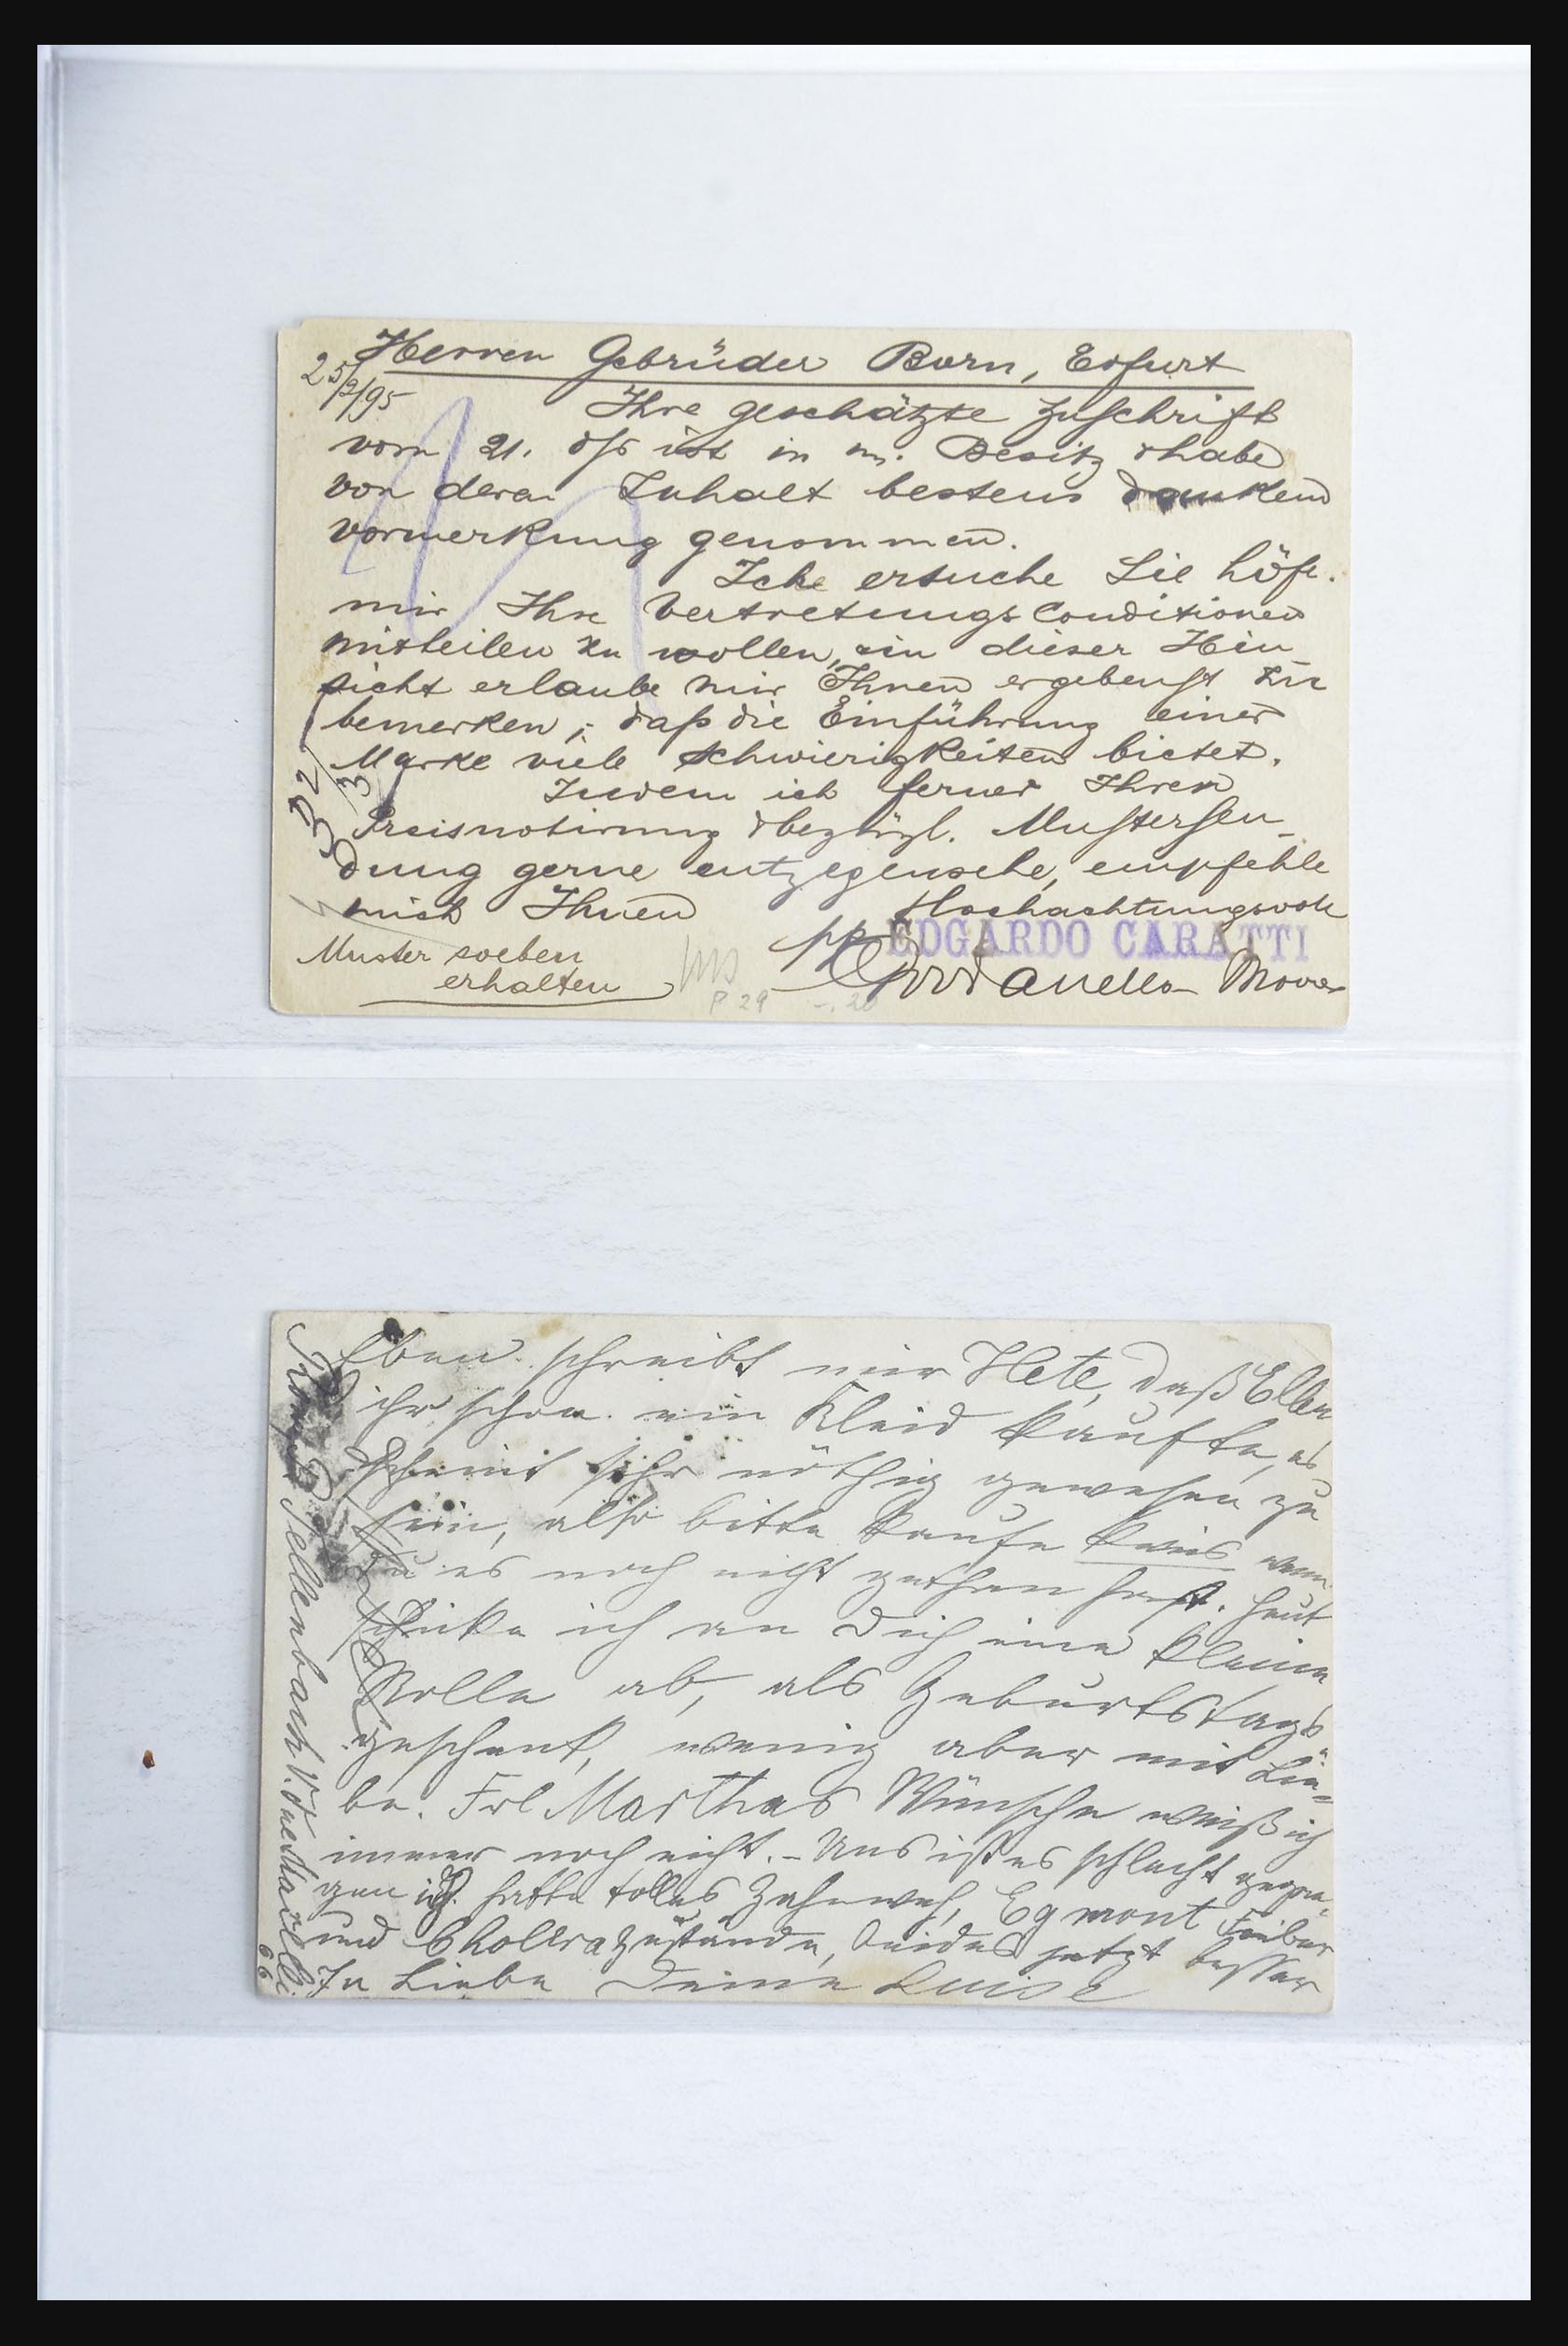 Herren Gebrüder Born, Erfurt
25/2/95
Ihre geschätzte Zuschrift
vom 21. dss ist in m. Besitz & habe
von deren Inhalt bestens dankend
Vormerkung genommen.
Ich ersuche Sie höfl.
mir Ihre Vertretungs Conditionen
mitteilen zu wollen, in dieser Hin_
sicht erlaube mir Ihnen ergebenst zu
bemerken, daß die Einführung einer
Marke viele Schwierigkeiten bietet.
Indem ich ferner Ihren
Preisnotirung & bezügl. Mustersen_
dung gerne entgegensehe, empfehle
mich Ihnen Hochachtungsvoll
pp EDGARDO CARATTI
Muster soeben
erhalten
P 29
Eben schreibt mir Hete, daß Ellen
ihr schon ein Kleid kaufte, es
scheint sehr nöthig gewesen zu
sein, also bitte kaufe keins wenn
Du es noch nicht gethan hast. Heut
schicke ich an Dich eine kleine
Rolle ab, als Geburtstags
geschenk, wenig aber mit Lie=
be. Frl Marthas Wünsche weiß ich
immer noch nicht. - Uns ist es schlecht gegan
gen ich hatte tolles Zahnweh, Egmont Fieber
und Cholerazustände, beides jetzt besser
In Liebe Deine Luise
Tellenbach V.